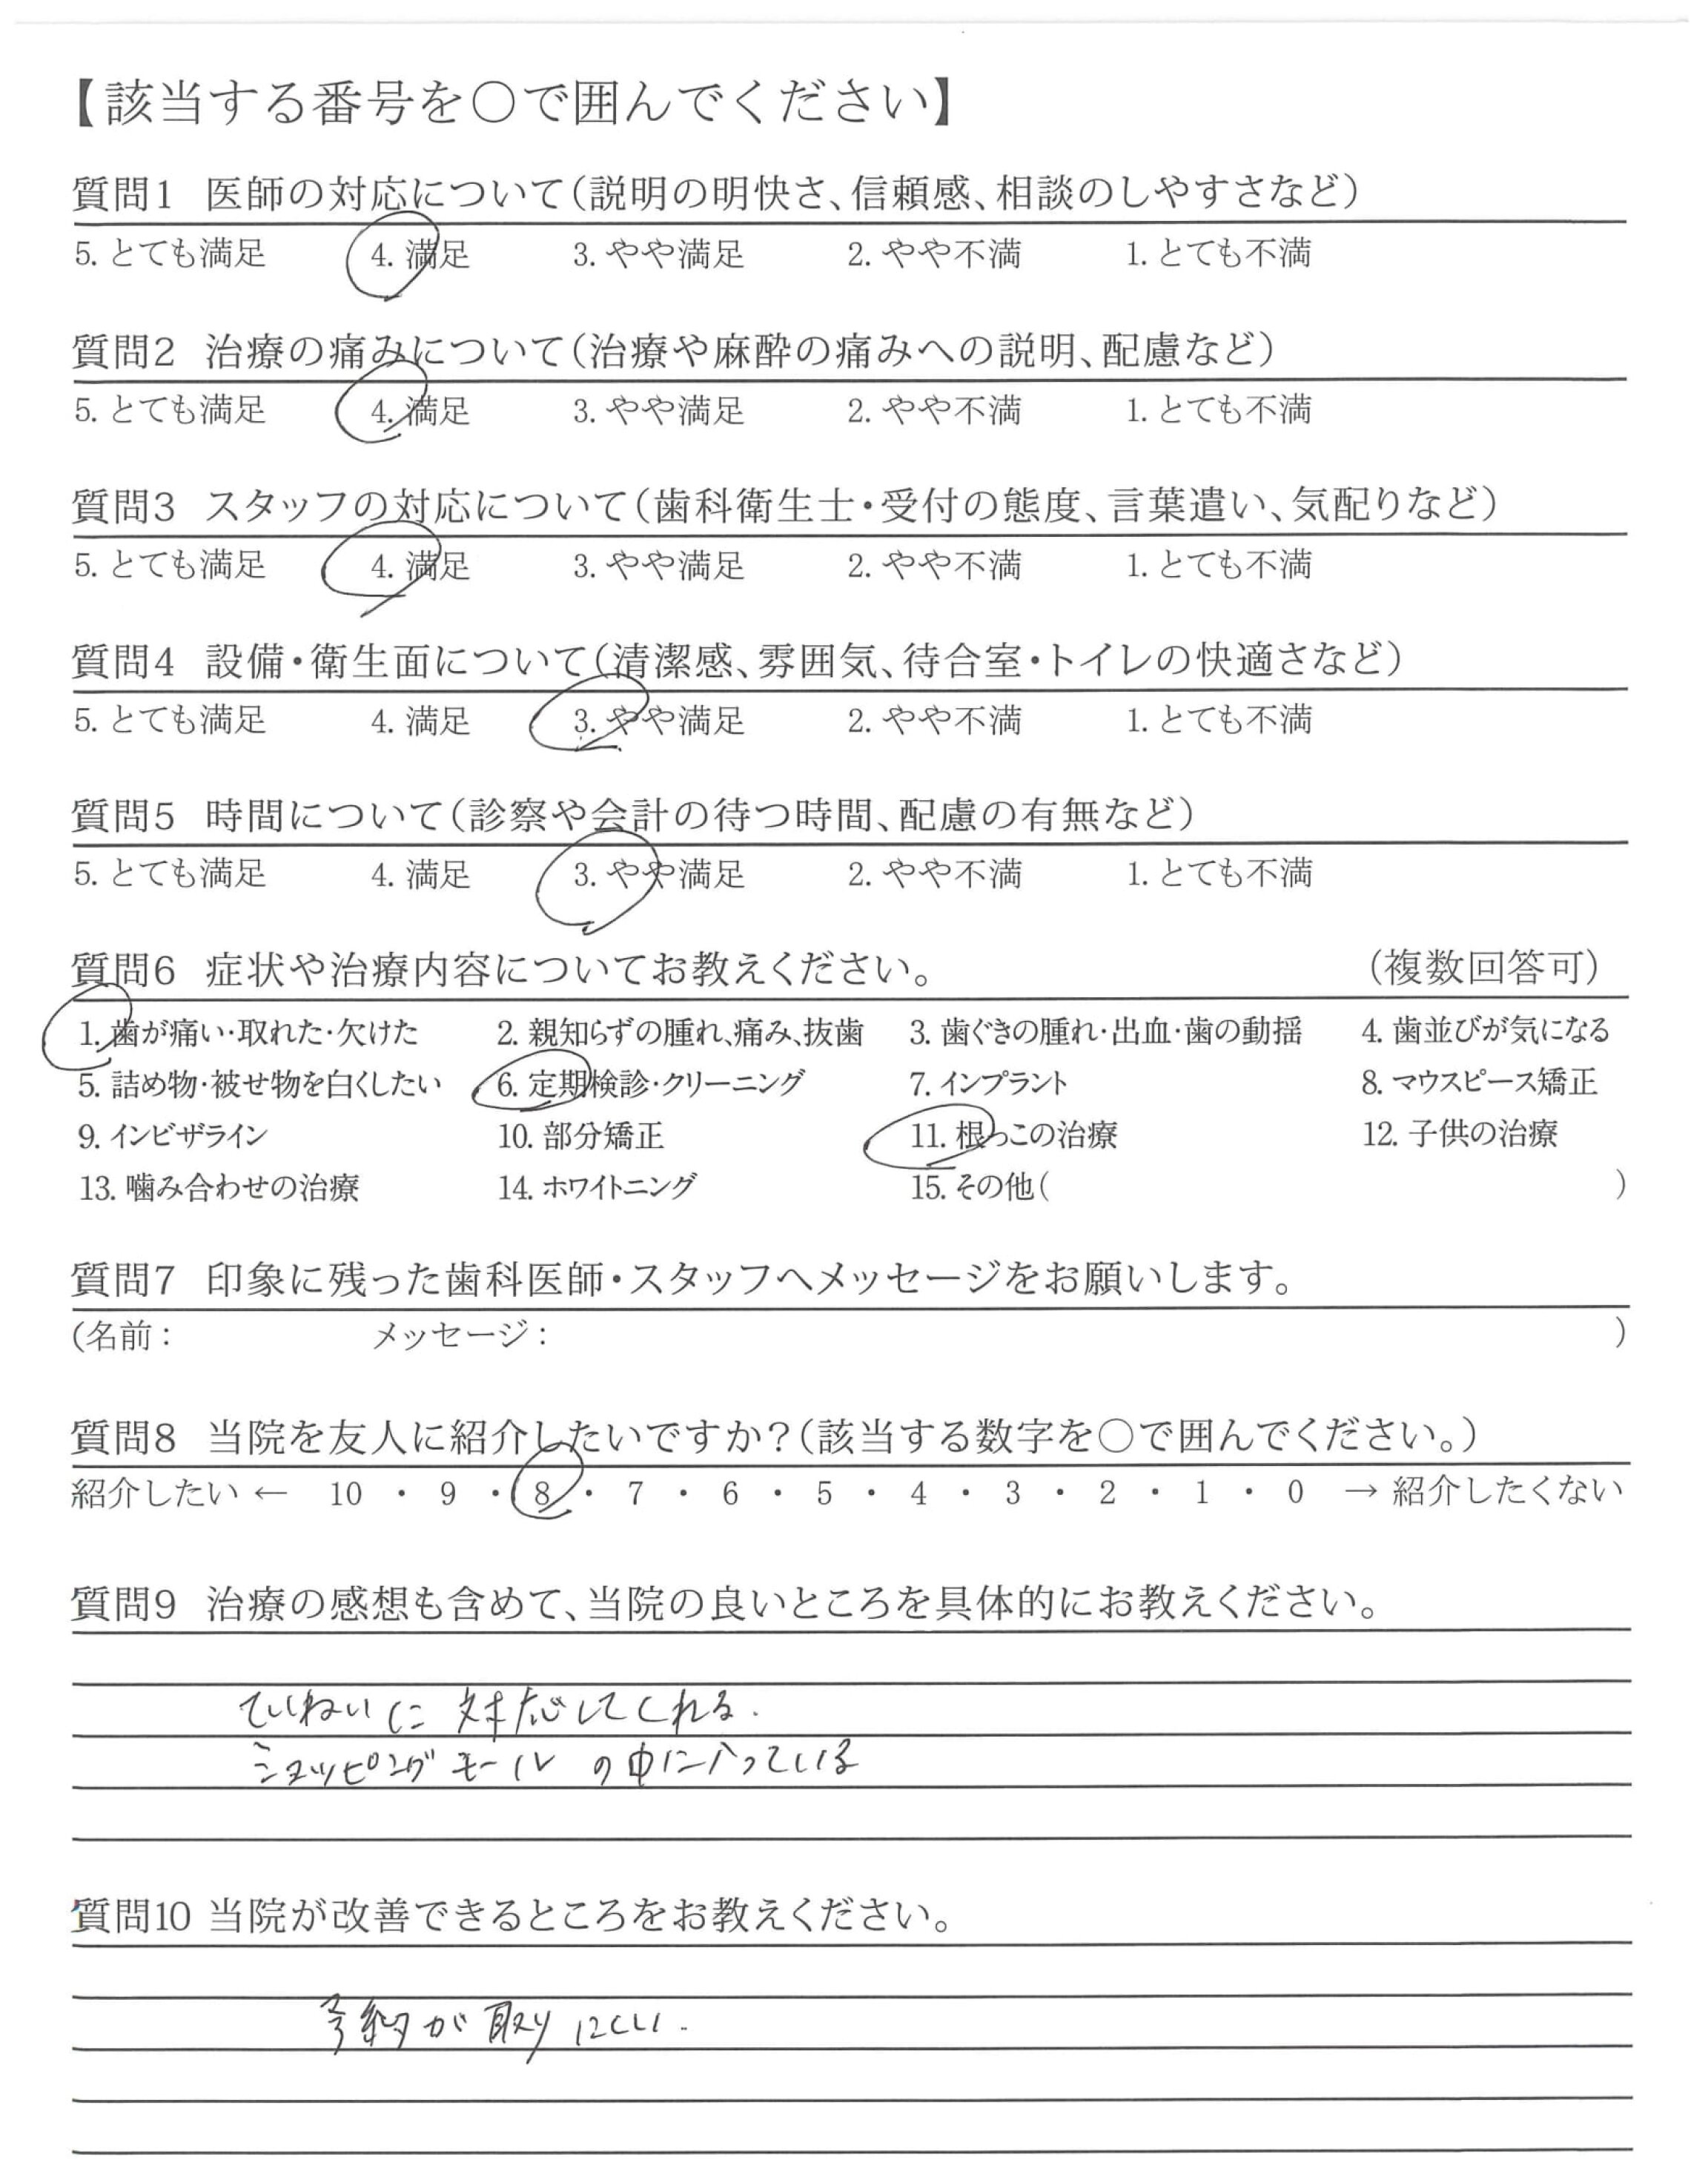 【該当する番号を〇で囲んでください】
質問1 医師の対応について(説明の明快さ、信頼感、相談のしやすさなど)
5. とても満足 4. 満足 3. やや満足 2. やや不満 1. とても不満
質問2 治療の痛みについて(治療や麻酔の痛みへの説明、配慮など)
5. とても満足 4. 満足 3. やや満足 2. やや不満 1. とても不満
質問3 スタッフの対応について(歯科衛生士・受付の態度、言葉遣い、気配りなど)
5. とても満足 4. 満足 3. やや満足 2. やや不満 1. とても不満
質問4 設備・衛生面について(清潔感、雰囲気、待合室・トイレの快適さなど)
5. とても満足 4. 満足 3. やや満足 2. やや不満 1. とても不満
質問5 時間について(診察や会計の待つ時間、配慮の有無など)
5. とても満足 4. 満足 3. やや満足 2. やや不満 1. とても不満
質問6 症状や治療内容についてお教えください。 (複数回答可)
1. 歯が痛い・取れた・欠けた 2. 親知らずの腫れ、痛み、抜歯 3. 歯ぐきの腫れ・出血・歯の動揺 4. 歯並びが気になる
5. 詰め物・被せ物を白くしたい 6. 定期検診・クリーニング 7. インプラント 8. マウスピース矯正
9. インビザライン 10. 部分矯正 11. 根っこの治療 12. 子供の治療
13. 噛み合わせの治療 14. ホワイトニング 15. その他( )
質問7 印象に残った歯科医師・スタッフへメッセージをお願いします。
(名前: メッセージ: )
質問8 当院を友人に紹介したいですか?(該当する数字を〇で囲んでください。)
紹介したい ← 10 ・ 9 ・ 8 ・ 7 ・ 6 ・ 5 ・ 4 ・ 3 ・ 2 ・ 1 ・ 0 → 紹介したくない
質問9 治療の感想も含めて、当院の良いところを具体的にお教えください。
ていねいに対応してくれる.
ショッピングモールの中に入っている
質問10 当院が改善できるところをお教えください。
予約が取りにくい.